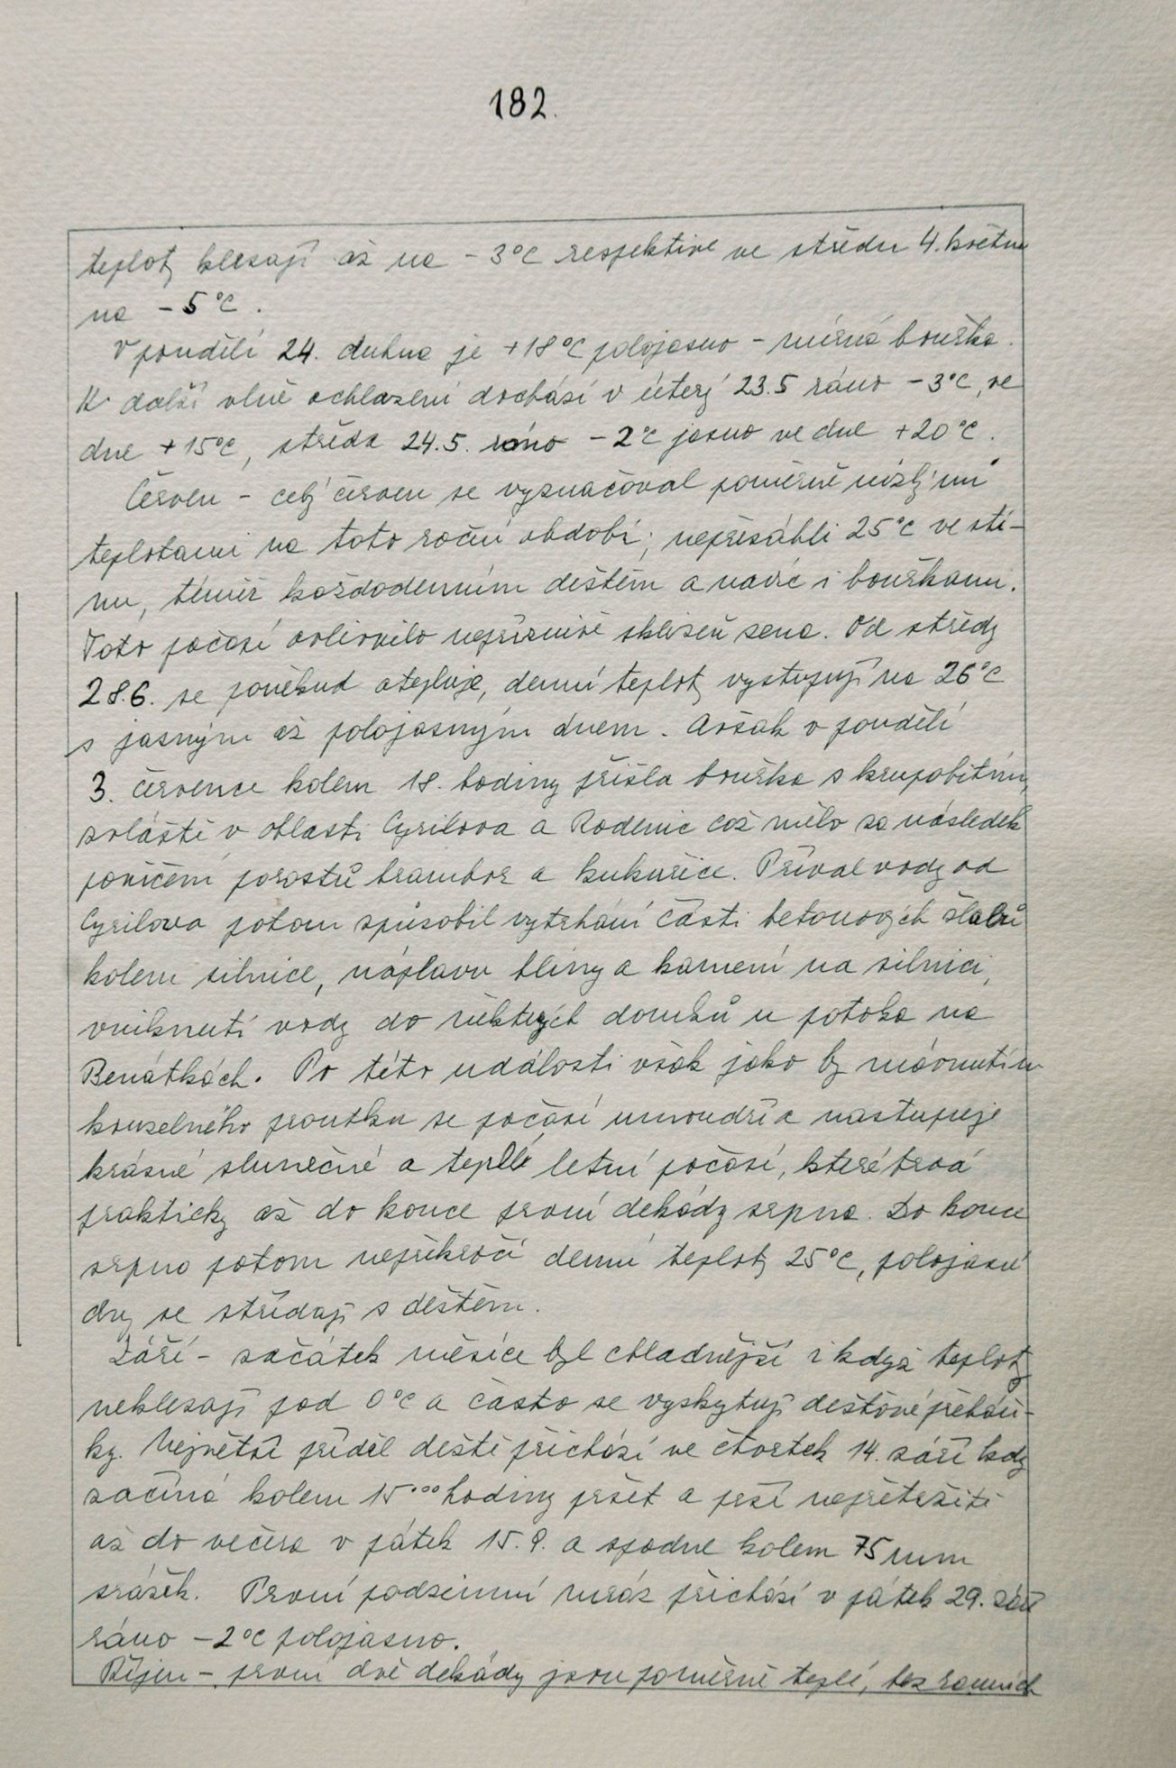 182.
teploty klesají až na - 3°C respektive ve středu 4. května
na - 5°C.
V pondělí 24. dubna je +18°C polojasno - mírná bouřka.
K další vlně ochlazení dochází v úterý 23.5 ráno - 3°C, ve
dne +15°C, středa 24.5. ráno - 2°C jasno ve dne +20°C.
Červen - celý červen se vyznačoval poměrně nízkými
teplotami na toto roční období; nepřesáhli 25°C ve stí-
nu, téměř každodenním deštěm a navíc i bouřkami.
Toto počasí ovlivnilo nepříznivě sklizeň sena. Od středy
28.6. se poněkud otepluje, denní teploty vystupují na 26°C
s jasným až polojasným dnem. Avšak v pondělí
3. července kolem 18. hodiny přišla bouřka s krupobitím,
zvláště v oblasti Cyrilova a Rodenic což mělo za následek
poničení porostů brambor a kukuřice. Příval vody od
Cyrilova potom způsobil vytrhání části betonových žlabů
kolem silnice, náplavu hlíny a kamení na silnici,
vniknutí vody do některých domků u potoka na
Benátkách. Po této události však jako by mávnutím
kouzelného proutku se počasí umoudří a nastupuje
krásné slunečné a teplé letní počasí, které trvá
prakticky až do konce první dekády srpna. Do konce
srpna potom nepřekročí denní teploty 25°C, polojasné
dny se střídají s deštěm.
Září - začátek měsíce byl chladnější i když teploty
neklesají pod 0°C a často se vyskytují dešťové přeháň-
ky. Největší příděl deště přichází ve čtvrtek 14. září kdy
začíná kolem 15°°° hodiny pršet a prší nepřetržitě
až do večera v pátek 15.9. a spadne kolem 75 mm
srážek. První podzimní mráz přichází v pátek 29. září
ráno -2°C polojasno.
Říjen - první dvě dekády jsou poměrně teplé, bez ranních